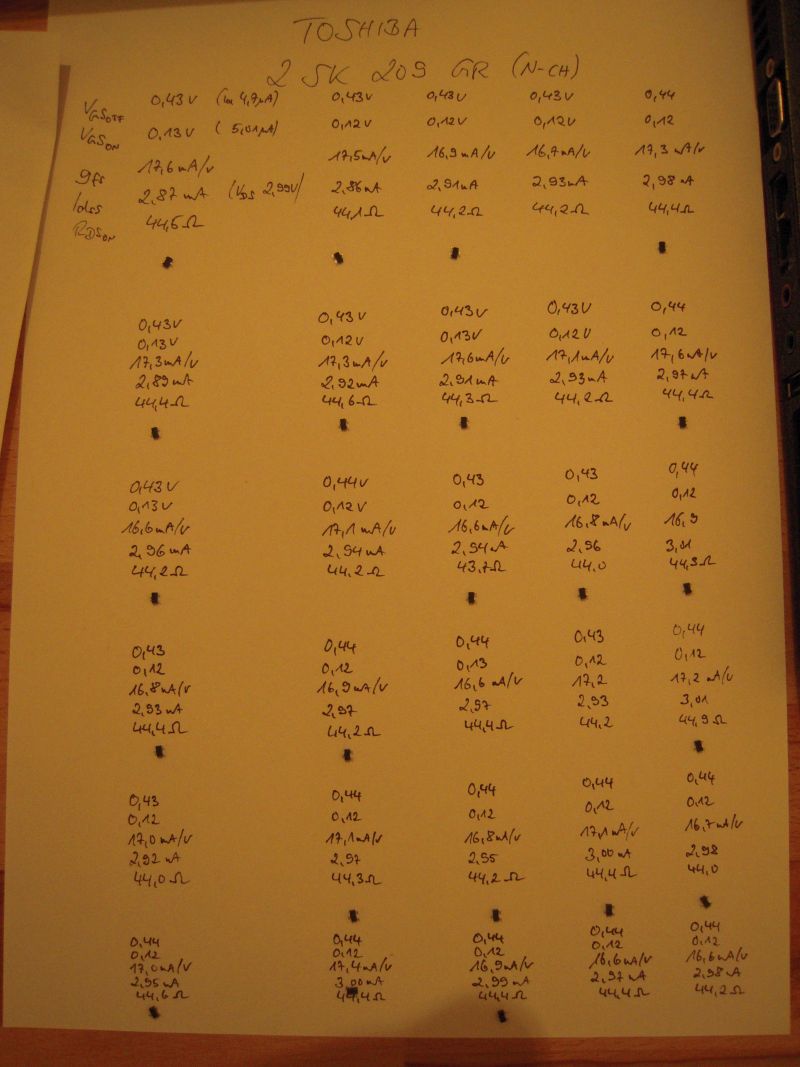 TOSHIBA
2 SK 209 GR (N-CH)
VGSOFF 0,43V (bei 4,9µA) 0,43V 0,43V 0,43V 0,44
VGSON 0,13V (5,01µA) 0,12V 0,12V 0,12V 0,12
gfs 17,6mA/V 17,5mA/V 16,9mA/V 16,7mA/V 17,3mA/V
Idss 2,87mA (VDS 2,99V) 2,86mA 2,91mA 2,93mA 2,98mA
RDSON 44,5Ω 44,1Ω 44,2Ω 44,2Ω 44,4Ω
0,43V 0,43V 0,43V 0,43V 0,44
0,13V 0,12V 0,13V 0,12V 0,12
17,3mA/V 17,3mA/V 17,6mA/V 17,1mA/V 17,6mA/V
2,89mA 2,92mA 2,91mA 2,93mA 2,97mA
44,4Ω 44,6Ω 44,3Ω 44,2Ω 44,4Ω
0,43V 0,44V 0,43 0,43 0,44
0,13V 0,12V 0,12 0,12 0,12
16,6mA/V 17,1mA/V 16,6mA/V 16,8mA/V 16,9
2,96mA 2,94mA 2,94mA 2,96 3,01
44,2Ω 44,2Ω 43,7Ω 44,0 44,3Ω
0,43 0,44 0,44 0,43 0,44
0,12 0,12 0,13 0,12 0,12
16,8mA/V 16,9mA/V 16,6mA/V 17,2 17,2mA/V
2,93mA 2,97 2,97 2,93 3,01
44,4Ω 44,2Ω 44,4Ω 44,2 44,9Ω
0,43 0,44 0,44 0,44 0,44
0,12 0,12 0,12 0,12 0,12
17,0mA/V 17,1mA/V 16,8mA/V 17,1mA/V 16,7mA/V
2,92mA 2,97 2,95 3,00mA 2,98
44,0Ω 44,3Ω 44,2Ω 44,4Ω 44,0
0,44 0,44 0,44 0,44 0,44
0,12 0,12 0,12 0,12 0,12
17,0mA/V 17,4mA/V 16,9mA/V 16,6mA/V 16,6mA/V
2,95mA 3,00mA 2,99mA 2,97mA 2,98mA
44,6Ω 44,4Ω 44,4Ω 44,4Ω 44,2Ω